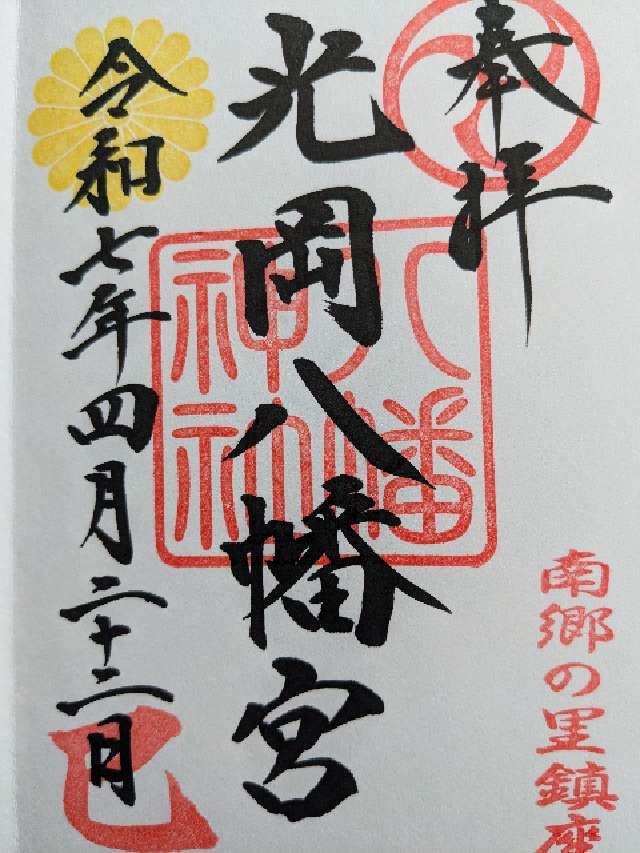 奉拝
光岡八幡宮
八幡
神社
令和七年四月二十二日
巳
南郷の里鎮座